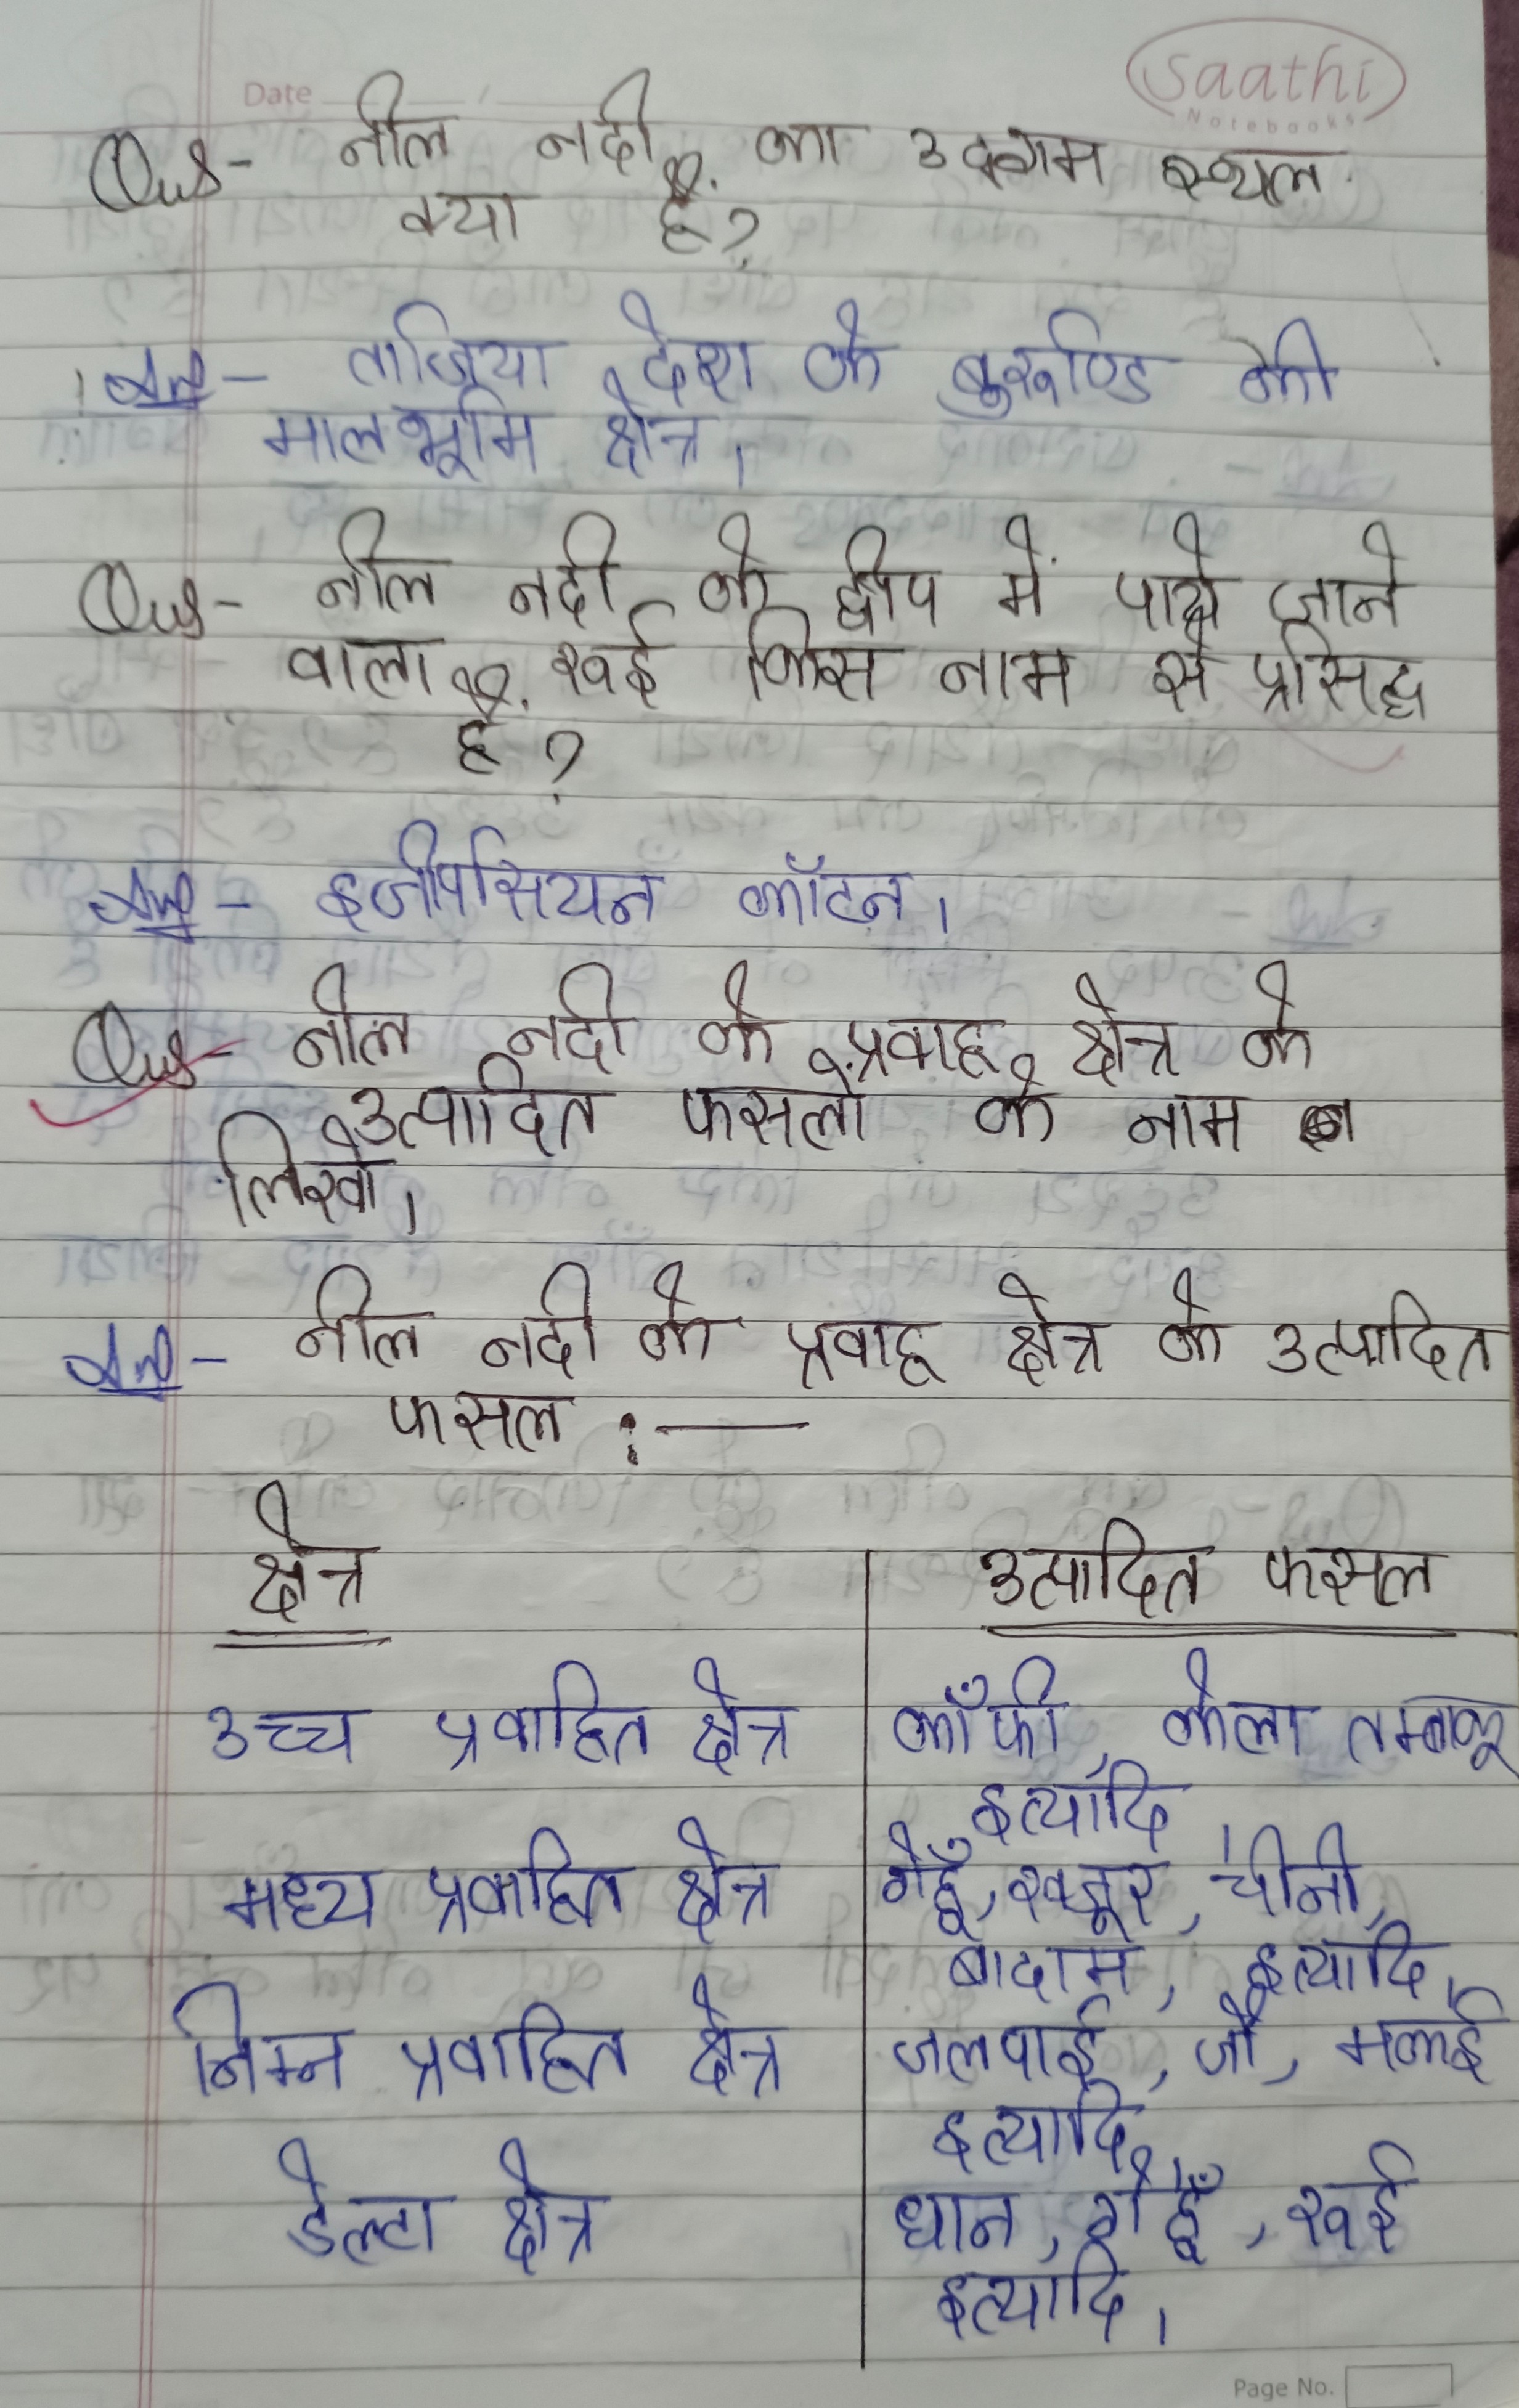 Saathi
Notebooks
Date
Qus- नील नदी का उदगम स्थल
क्या है?
Ans- तांजिया देश के बुरूण्डि की
मालभूमि क्षेत्र।
Qus- नील नदी के द्वीप में पाये जाने
वाला रूई किस नाम से प्रसिद्ध
है?
Ans- इजीपसियन कॉटन।
Qus- नील नदी के प्रवाह क्षेत्र के
उत्पादित फसलों के नाम
लिखो।
Ans- नील नदी के प्रवाह क्षेत्र के उत्पादित
फसल :—
क्षेत्र उत्पादित फसल
उच्च प्रवाहित क्षेत्र कॉफी, केला तम्बाकू
इत्यादि
मध्य प्रवाहित क्षेत्र गेहूँ, खजूर, चीनी,
बादाम, इत्यादि,
निम्न प्रवाहित क्षेत्र जलपाई, जौ, मकई
इत्यादि,
डेल्टा क्षेत्र धान, गेहूँ, रूई
इत्यादि।
Page No.